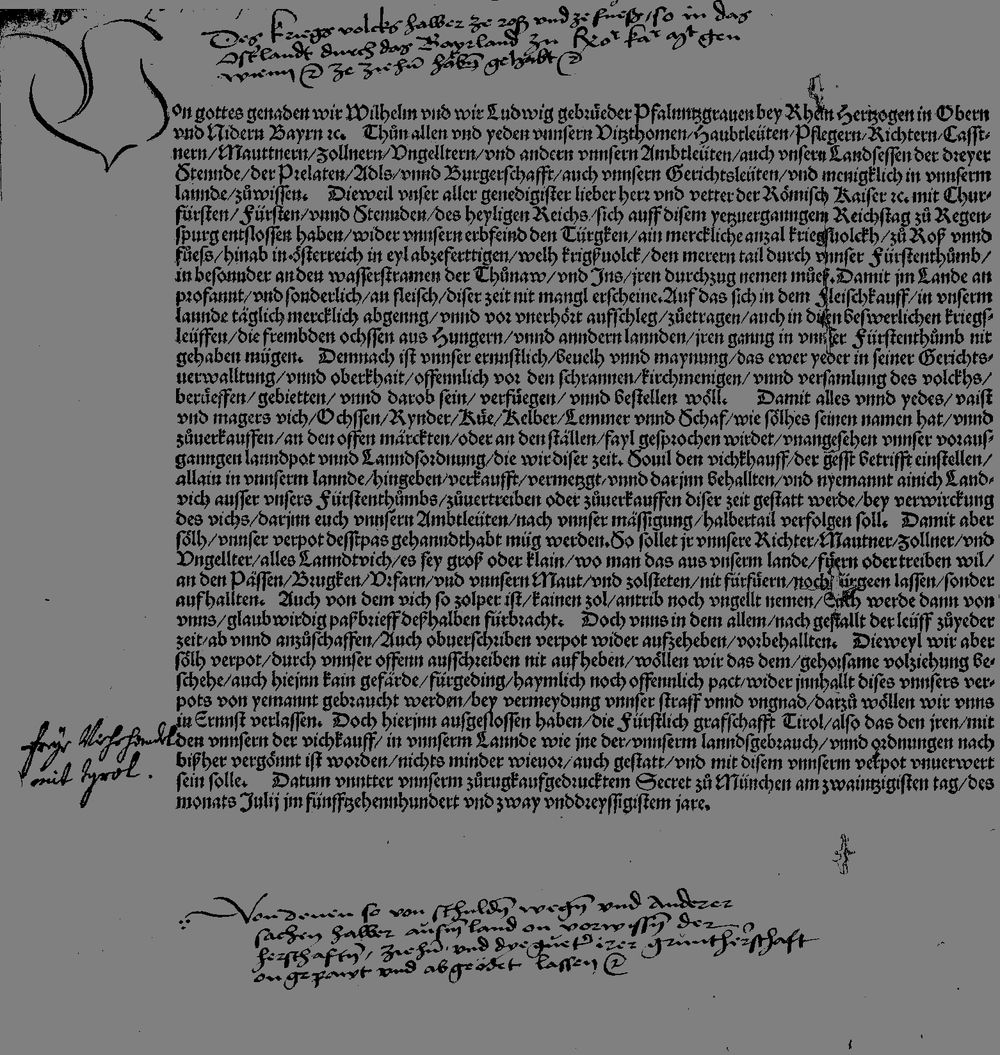 Des kriegs volcks halber ze roß vnd ze fueß, so in das
Ostlandt durch das Bayrland zu
wienn ze ziehn gehabt
VOn gottes genaden wir Wilhelm vnd wir Ludwig gebrüeder Pfalnntzgrauen bey Rhein Hertzogen in Obern
vnd Nidern Bayrn ꝛc. Thůn allen vnd yeden vnnsern Vitzthomen/Haubtleüten/Pflegern/Richtern/Casst-
nern/Mauttnern/Zollnern/Vngelltern/vnd andern vnnsern Ambtleüten/auch vnsern Landsessen der dreyer
Stennde/der Prelaten/Adls/vnnd Burgerschafft/auch vnnsern Gerichtsleüten/vnd menigklich in vnnserm
lannde/zůwissen. Dieweil vnser aller genedigister lieber herr vnd vetter der Römisch Kaiser ꝛc. mit Chur-
fürsten/Fürsten/vnnd Stennden/des heyligen Reichs/sich auff disem yetzuerganngem Reichstag zů Regen-
spurg entslossen haben/wider vnnsern erbfeind den Türgken/ain merckliche anzal kriegßuolckh/zů Roß vnnd
fůess/hinab in österreich in eyl abzeferttigen/welh krigßuolck/den merern tail durch vnnser Fürstenthůmb/
in besonnder an den wasserstramen der Thůnaw/vnd Ins/jren durchzug nemen můeß. Damit jm Lande an
profannt/vnd sonderlich/an fleisch/diser zeit nit mangl erscheine. Auf das sich in dem fleischkauff/in vnserm
lannde täglich mercklich abgenng/vnnd vor vnerhört aufschleg/zůetragen/auch in disen beswerlichen kriegs-
leüffen/die frembden ochssen aus Hungern/vnnd anndern lannden/jren ganng in vnnser Fürstenthůmb nit
gehaben mügen. Demnach ist vnnser ernnstlich/beuelh vnnd maynung/das ewer yeder in seiner Gerichts-
uerwalltung/vnnd oberkhait/offennlich vor den schrannen/kirchmenigen/vnnd versamlung des volckhs/
berüeffen/gebietten/vnnd darob sein/verfüegen/vnnd bestellen wöll. Damit alles vnnd yedes/vaist
vnd magers vich/Ochssen/Rynder/Küe/Kelber/Lemmer vnnd Schaf/wie sölhes seinen namen hat/vnnd
zůuerkauffen/an den offen märckten/oder an den ställen/fayl gesprochen wirdet/vnangesehen vnnser voraus-
ganngen lanndpot vnnd Lanndsordnung/die wir diser zeit. Souil den vichkhauff/der gesst betrifft einstellen/
allain in vnnserm lannde/hingeben/verkaufft/vermetzgt/vnnd darjnn behallten/vnd nyemannt ainich Land-
vich ausser vnsers Fürstenthůmbs/zůuertreiben oder zůuerkauffen diser zeit gestatt werde/bey verwirckung
des vichs/darjnn euch vnnsern Ambtleüten/nach vnnser mässigung/halbertail verfolgen soll. Damit aber
sölh/vnnser verpot desstpas gehanndthabt müg werden. So sollet jr vnnsere Richter/Mautner/Zollner/vnd
Vngellter/alles Lanndtvich/es sey groß oder klain/wo man das aus vnserm lande/füern oder treiben wil/
an den Pässen/Brugken/Vrfarn/vnd vnnsern Maut/vnd zolsteten/nit fürfüern/noch fürgeen lassen/sonder
aufhallten. Auch von dem vich so zolper ist/kainen zol/antrib noch vngellt nemen/Sölh werde dann von
vnns/glaubwirdig paßbrieff deßhalben fürbracht. Doch vnns in dem allem/nach gestallt der leüff zůyeder
zeit/ab vnnd anzůschaffen/Auch obuerschriben verpot wider aufzeheben/vorbehallten. Dieweyl wir aber
sölh verpot/durch vnnser offenn ausschreiben nit aufheben/wöllen wir das dem/gehorsame volziehung be-
schehe/auch hiejnn kain gefärde/fürgeding/haymlich noch offennlich pact/wider jnnhallt dises vnnsers ver-
pots von yemannt gebraucht werden/bey vermeydung vnnser straff vnnd vngnad/darzů wöllen wir vnns
in Ernnst verlassen. Doch hierjnn ausgeslossen haben/die Fürstlich grafschafft Tirol/also das den jren/mit
den vnnsern der vichkauff/in vnnserm Lannde wie jne der/vnnserm lanndsgebrauch/vnnd ordnungen nach
bißher vergönnt ist worden/nichts minder wieuor/auch gestatt/vnd mit disem vnnserm verpot vnuerwert
sein solle. Datum vnntter vnnserm zůrugkaufgedrucktem Secret zů München am zwaintzigisten tag/des
monats Julij jm fünfftzehennhundert vnd zway vnddreyssigistem jare.
freye Viehhandel
mit Tyrol.
Von denen so von schuldn wegn vnd anderer
sachen halber aus land on vorwissn der
herschafftn, ziehn vnd irer gruntherschafft
ongepawt vnd abgeödet lassen